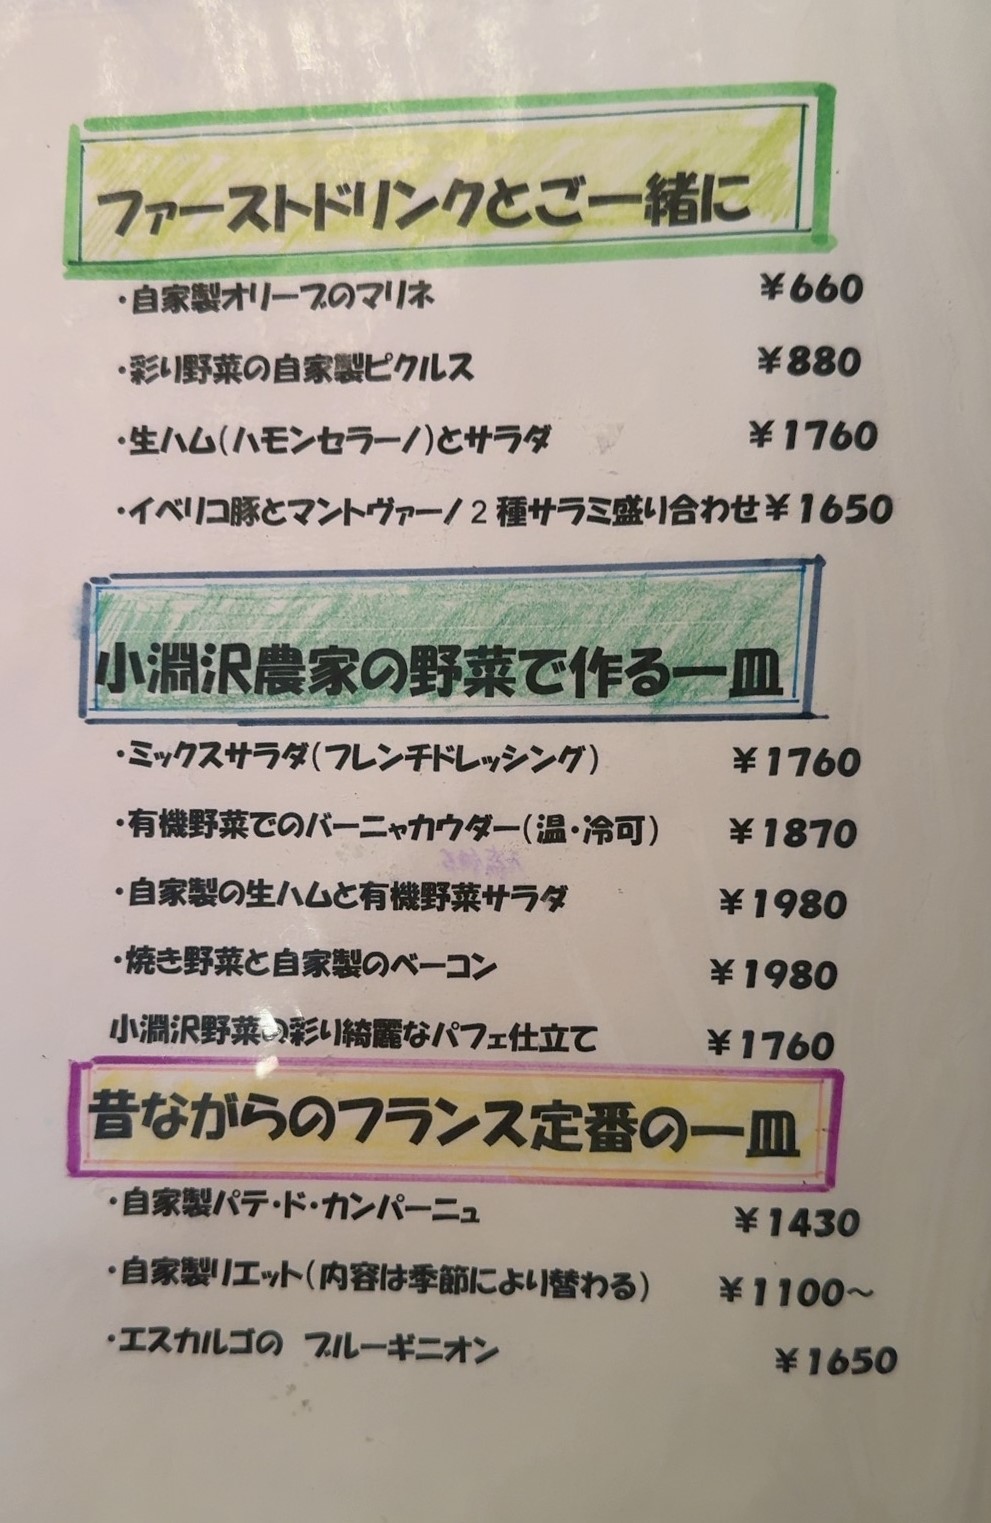 ファーストドリンクとご一緒に
・自家製オリーブのマリネ ￥660
・彩り野菜の自家製ピクルス ￥880
・生ハム(ハモンセラーノ)とサラダ ￥1760
・イベリコ豚とマントヴァーノ2種サラミ盛り合わせ￥1650
小淵沢農家の野菜で作る一皿
・ミックスサラダ(フレンチドレッシング) ￥1760
・有機野菜でのバーニャカウダー(温・冷可) ￥1870
・自家製の生ハムと有機野菜サラダ ￥1980
・焼き野菜と自家製のベーコン ￥1980
小淵沢野菜の彩り綺麗なパフェ仕立て ￥1760
昔ながらのフランス定番の一皿
・自家製パテ・ド・カンパーニュ ￥1430
・自家製リエット(内容は季節により替わる) ￥1100～
・エスカルゴの ブルーギニオン ￥1650